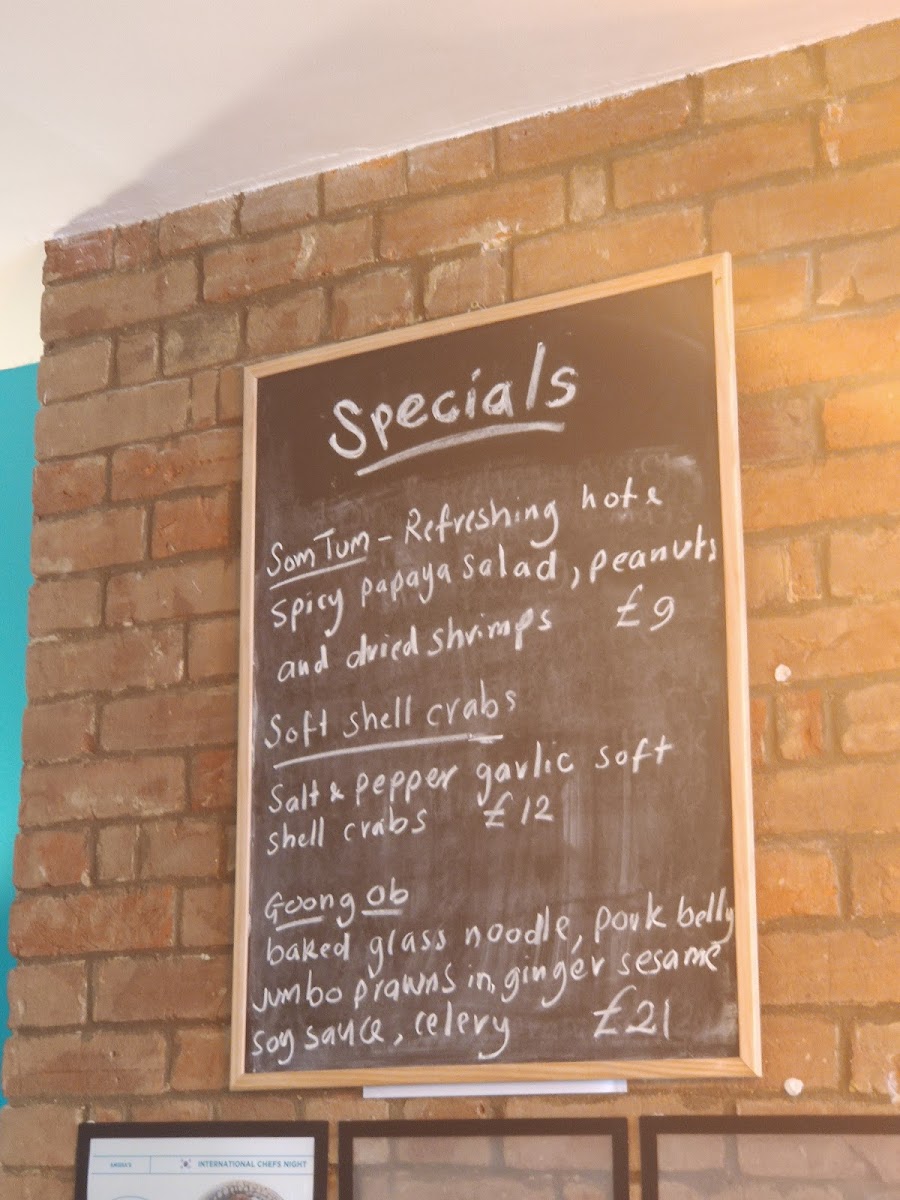 Specials
Som Tum - Refreshing hot &
spicy papaya salad, peanuts
and dried shrimps £9
Soft shell crabs
Salt & pepper garlic soft
shell crabs £12
Goong Ob
baked glass noodle, pork belly
Jumbo prawns in, ginger sesame
soy sauce, celery £21
INTERNATIONAL CHEFS NIGHT